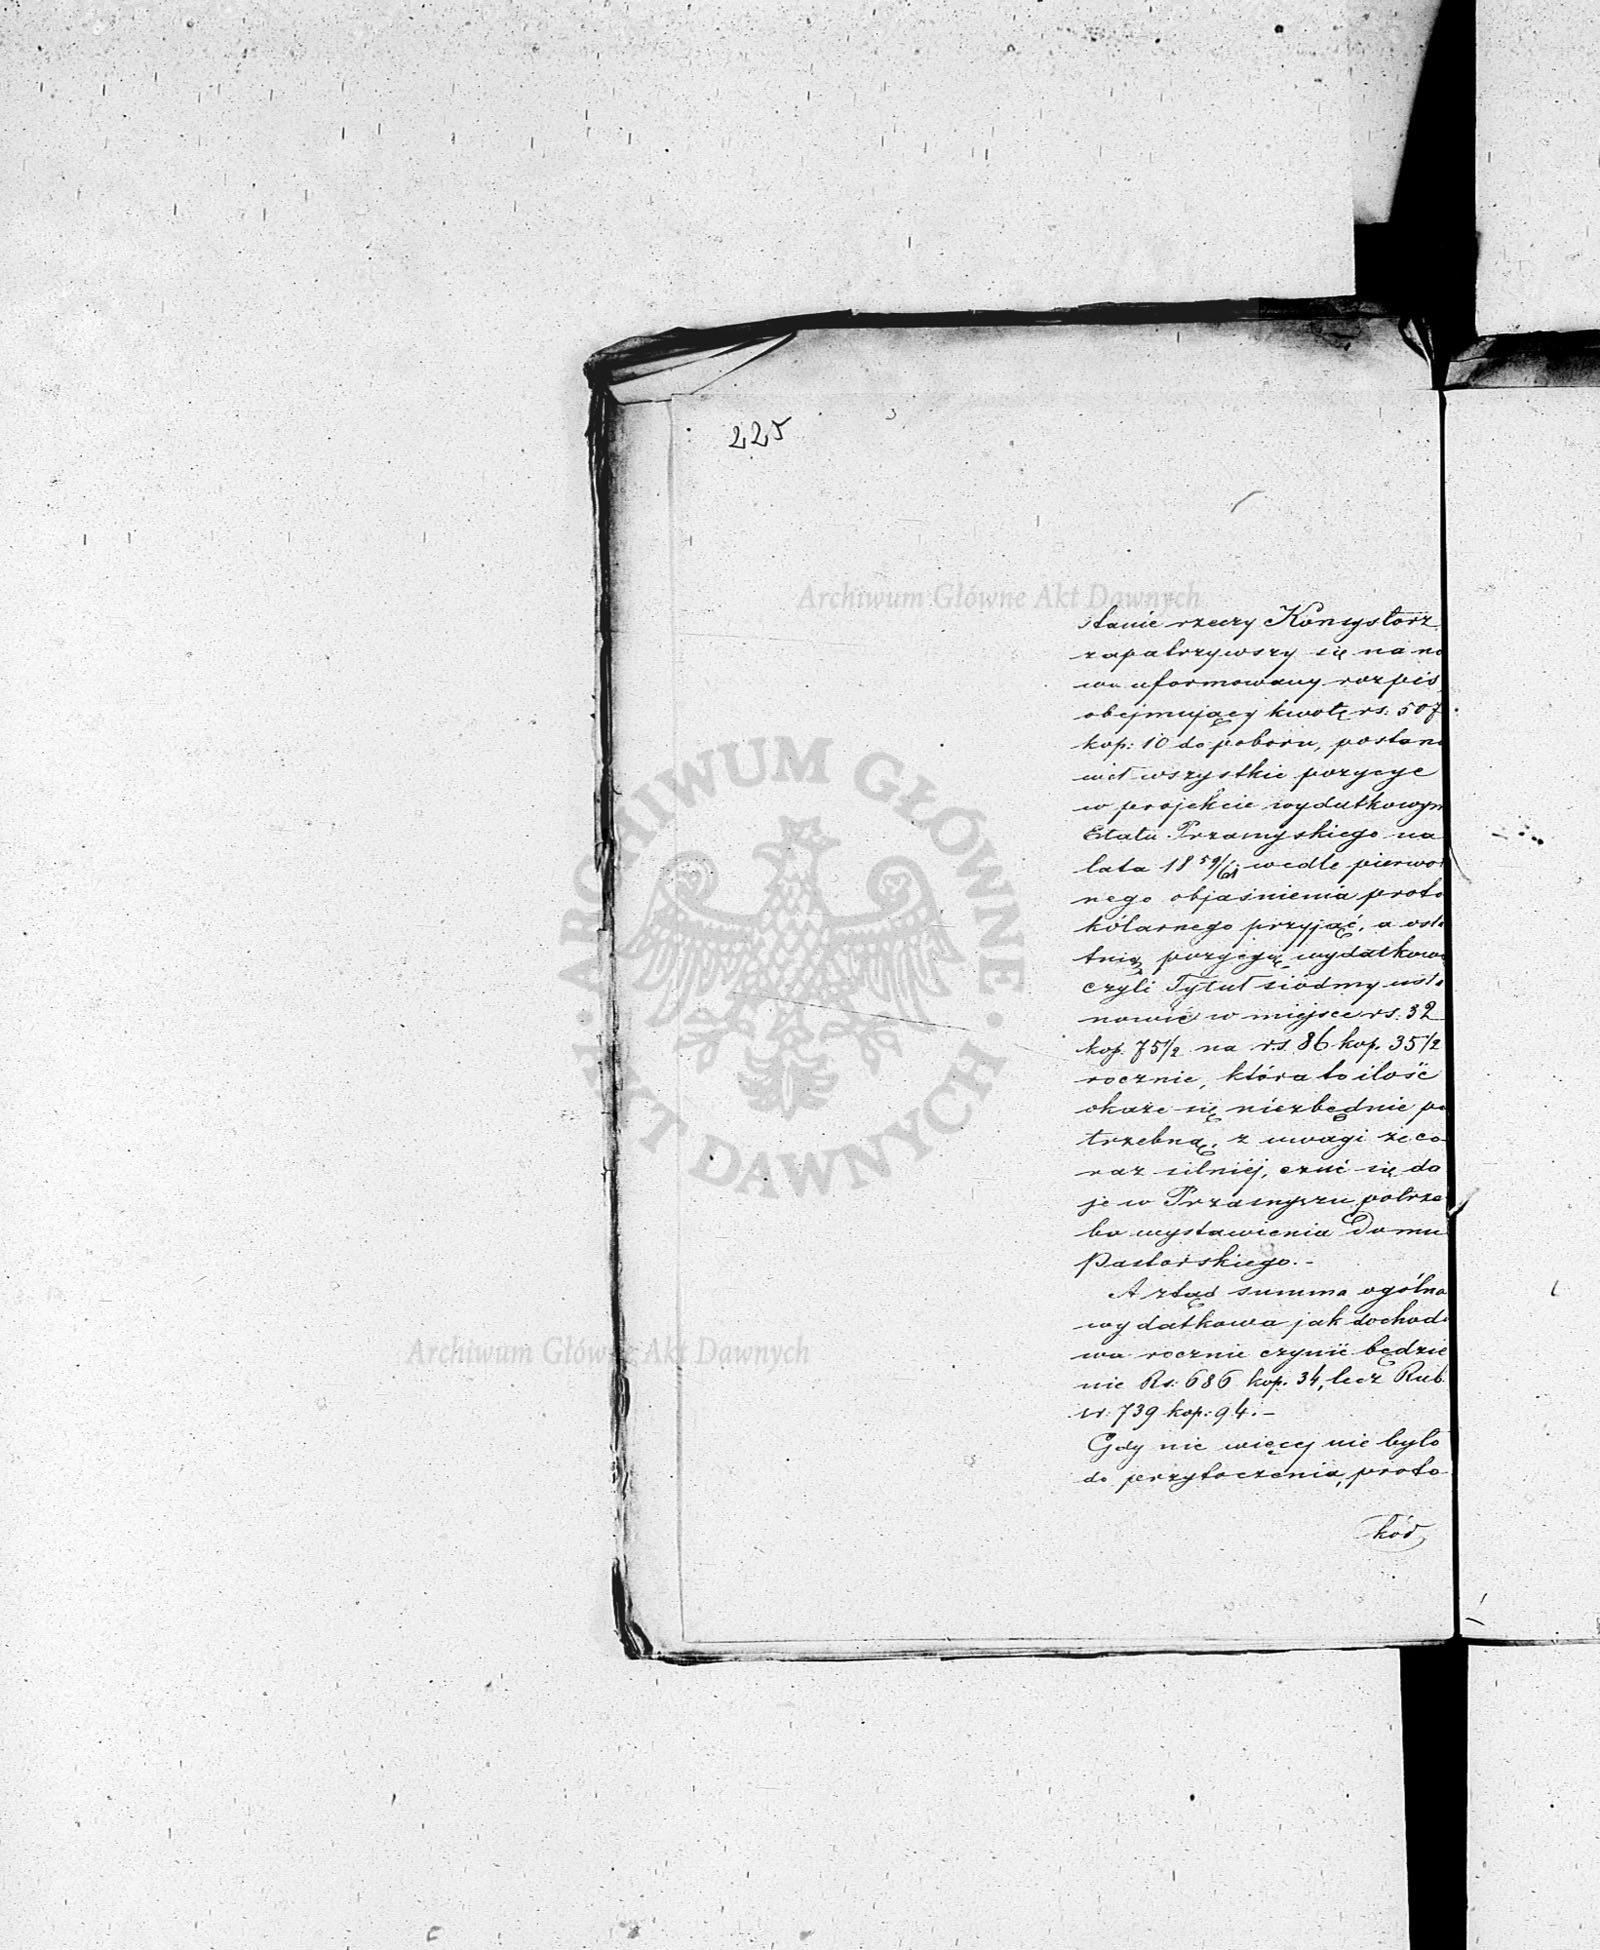 225
stanie rzeczy Konsystorz
zapatrzywszy się na no
wo uformowany rozpis
obejmujący kwotę rs: 507
kop: 10 do poboru, postano
wił wszystkie pozycye
w projekcie wydatkowym
Etatu Przamyskiego na
lata 18 59/61 wedle pierwot
nego objaśnienia proto
kólarnego przyjąć, a osta
tnią pozycyą wydatkową
czyli Tytuł siódmy usta
nowić w miejsce rs. 32
kop. 75 1/2 na rs. 86 kop. 35 1/2
rocznie, która to ilość
okaże się niezbędnie po
trzebną, z uwagi że co
raz silniej, czuć się da
je w Przamyszu potrze
ba wystawienia Domu
Pastorskiego.-
A ztąd summa ogólna
wydatkowa jak dochodo
wa rocznie czynić będzie
nie Rs: 686 kop. 34, lecz Rub.
sr: 739 kop: 94.-
Gdy nic więcej nie było
do przytoczenia, proto-
kół
Archiwum Główne Akt Dawnych
Archiwum Główne Akt Dawnych
ARCHIWUM GŁÓWNE · AKT DAWNYCH ·